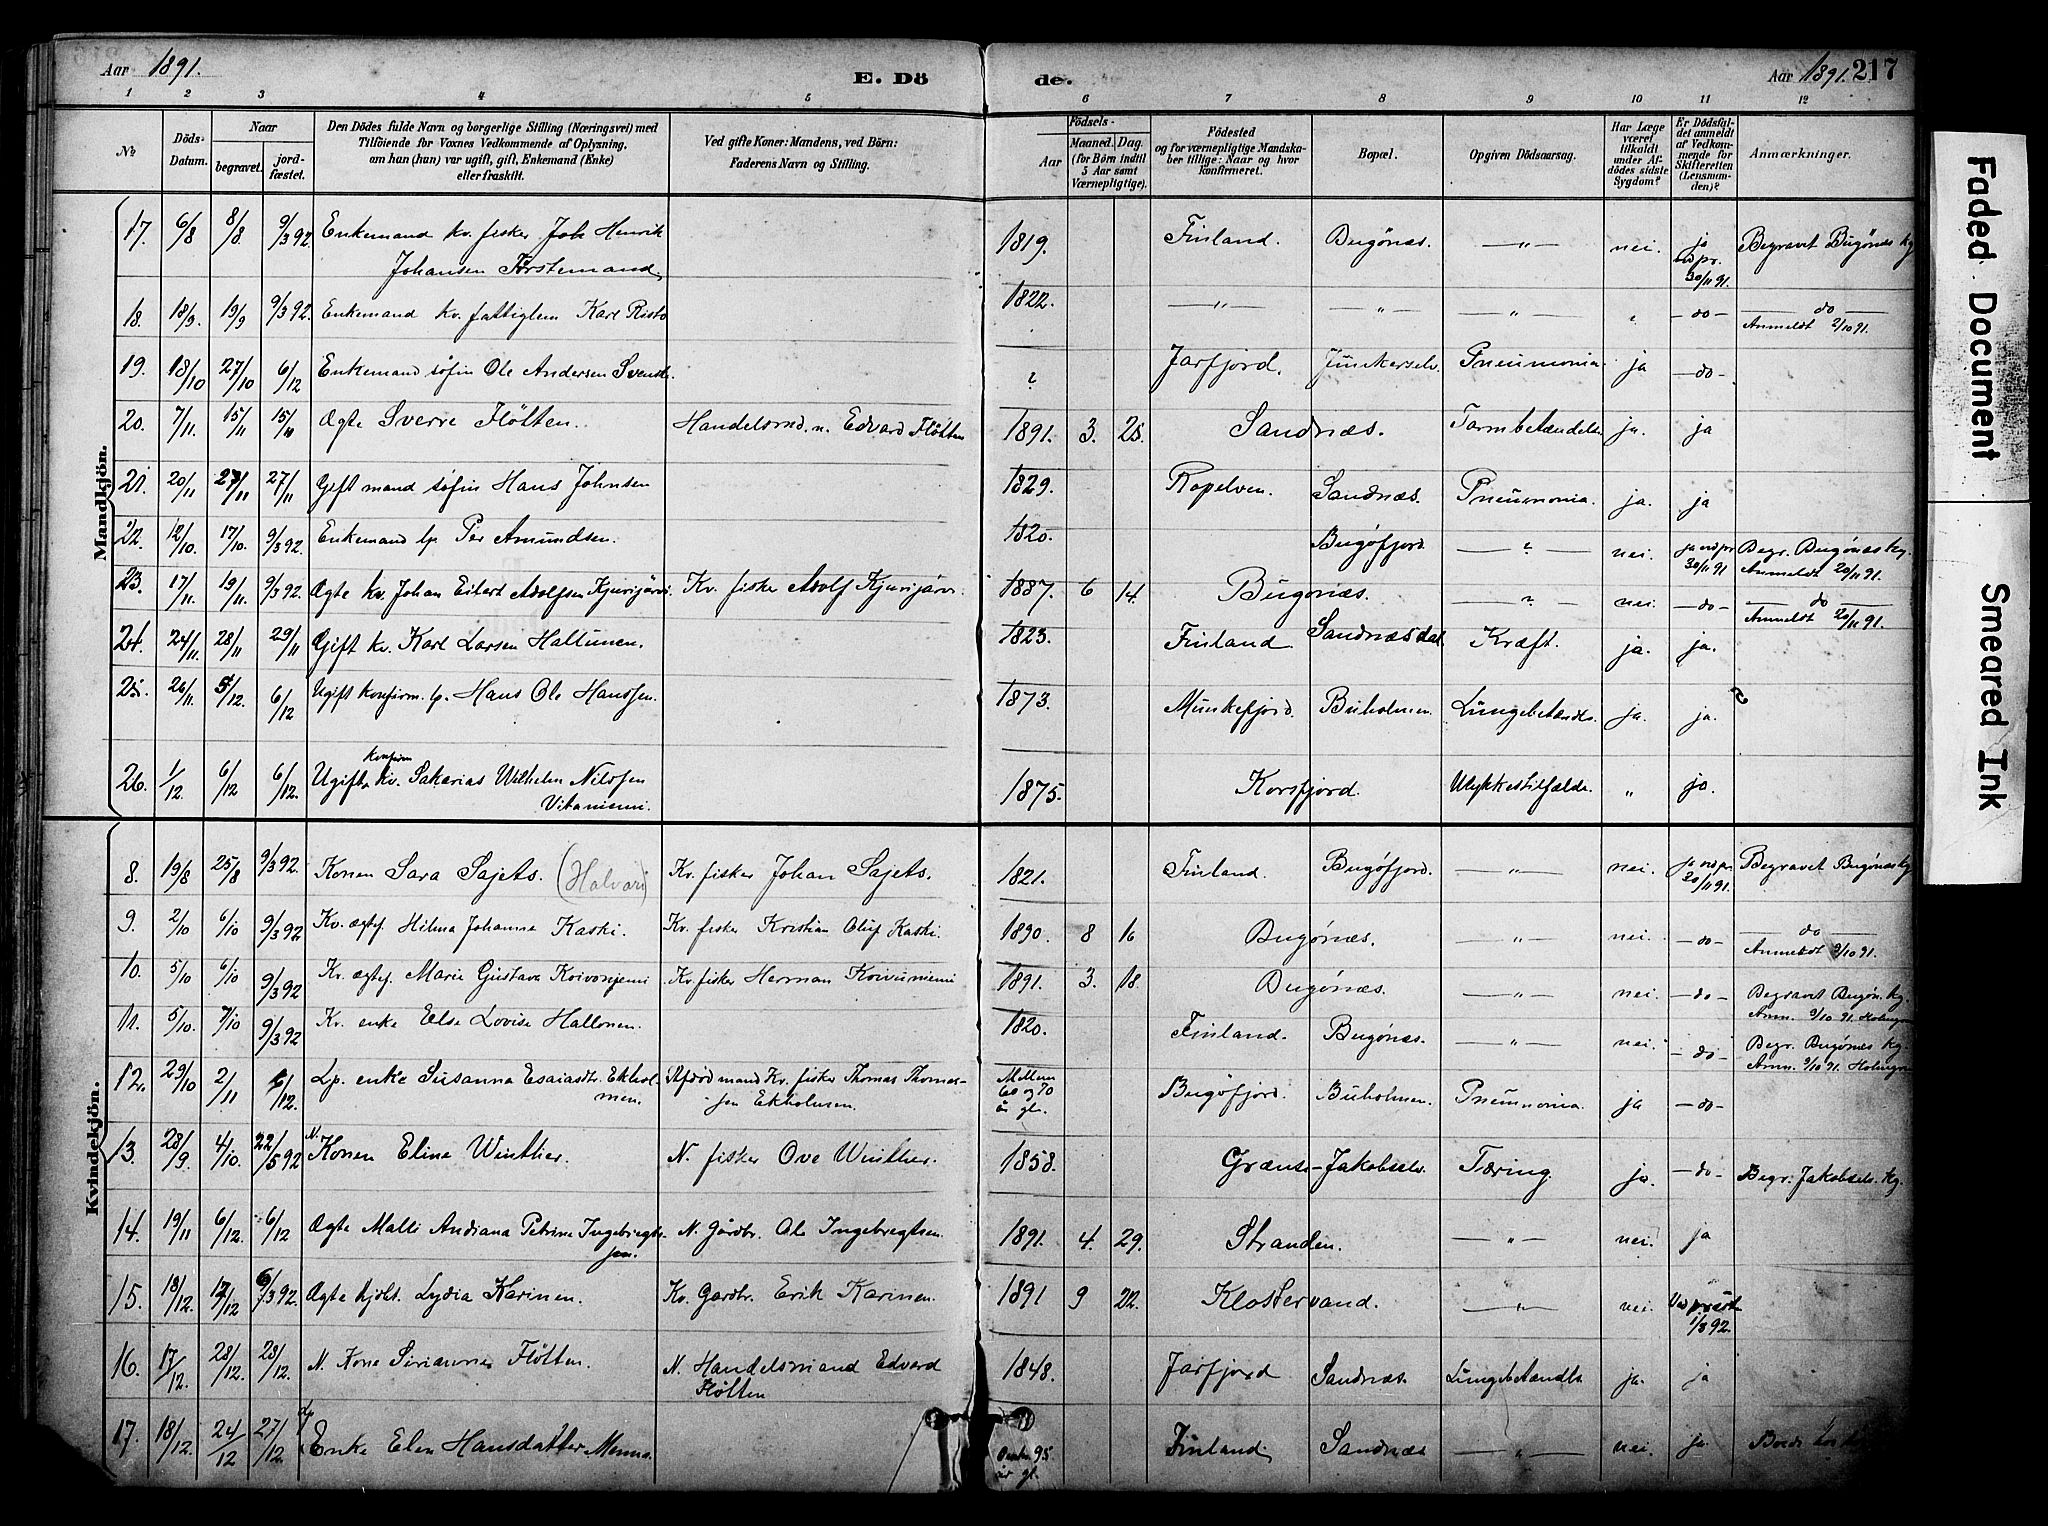 Aar 1891.
E. Dö
de.
Aar 1891. 217
1 2 3 4 5 6 7 8 9 10 11 12
No
Döds-Datum.
Naar
begravet.
jord-fæstet.
Den Dödes fulde Navn og borgerlige Stilling (Næringsvei) med
Tilföiende for Voxnes Vedkommende af Oplysning,
om han (hun) var ugift, gift, Enkemand (Enke)
eller fraskilt.
Ved gifte Koner: Mandens, ved Börn:
Faderens Navn og Stilling.
Födsels-
Aar
Maaned. Dag.
(for Börn indtil
5 Aar samt
Værnepligtige).
Födested
og for værnepligtige Mandska-
ber tillige: Naar og hvor
konfirmeret.
Bopæl.
Opgiven Dödsaarsag.
Har Læge
været
tilkaldt
under Af-
dödes sidste
Sygdom?
Er Dödsfal-
det anmeldt
af Vedkom-
mende for
Skifteretten
(Lensman-
den)?
Anmærkninger.
Mandkjön.
17. 6/8 8/8 9/3 92 Enkemand kv. fisker Joh Henrik 1819. Finland. Bugönæs. — „ — nei. ja Begravet Bugönæs kg
Johansen Förstemand. 30/11 91.
18. 18/9. 19/9 9/3 92. Enkemand kv. fattiglem Karl Risto 1822. — „ — — „ — — „ — — do — — do —
Anmeldt 2/10 91.
19. 18/10 27/10 6/12 Enkemand söfin Ole Andersen ? Jarfjord. Junkerselv. Pneumonia. ja — do —
20. 7/11. 15/11 15/11 Ægte Sverre Flötten. Handelsmd. n. Edvard Flötten 1891. 3. 25. Sandnæs. Tarmbetændelse ja. ja
21. 20/11 27/11 27/11 Gift mand söfin Hans Johnsen 1829. Ropelven. Sandnæs. Pneumonia. ja. ja
22. 12/10. 17/10. 9/3 92. Enkemand lp. Per Amundsen. 1820. Bugöfjord. — ? — nei. ja 30/11 91 Begr. Bugönæs kg.
Anmeldt 20/11 91.
23. 17/11. 19/11. 9/3 92. Ægte kv. Johan Eilert Adolfsen Kjurijärvi. Kv. fisker Adolf Kjurijärvi. 1887. 6 14. Bugönæs. — ? — nei. — do — — do —
Anmeldt 20/11 91.
24. 24/11. 28/11 29/11 Gift kv. Karl Larsen Hallunen. 1823. Finland Sandnæsdal. Kræft. ja. ja.
25. 26/11. 5/12. 6/12 Ugift konfirm. lp. Hans Ole Hanssen. 1873. Munkefjord. Buholmen. Lungebetændls. ja. ja.
konfirm
26. 1/12. 6/12 6/12. Ugift kv. Sakarias Wilhelm Nilssen 1875. Korsfjord. Ulykkestilfælde. „ ja.
Vikaniemi.
Kvindekjön.
8. 19/8 25/8 9/3 92. Konen Sara Sajets. (Halvari) Kv. fisker Johan Sajets. 1821. Finland. Bugöfjord. — „ — nei. ja 30/11 91. Begravet Bugönæs kg
9. 2/10 6/10 9/3 92 Kv. ægtef. Hilma Johanna Kaski. Kv. fisker Kristian Oluf Kaski. 1890. 8 16 Bugönæs. — „ — nei. — do — — do —
Anmeldt 9/10 91.
10. 5/10 6/10 9/3 92 Kv. ægtef. Marie Gustava Koivoniemi Kv. fisker Herman Koivuniemi 1891. 3. 18. Bugönæs. — „ — nei. — do — Begravet Bugön. kg.
Anm. 9/10 91. Holmgren
11. 5/10. 7/10 9/3 92 Kv. enke Else Lovise Hallonen. 1820. Finland. Bugönæs. — „ — nei. — do — Begr. Bugönæs kg.
Anm. 9/10 91. Holmgren
12. 29/10 2/11 6/12. Lp. enke Susanna Esaiasdtr. Ekhol-men. Afdöd mand Kv. fisker Thomas Thomas-sen Ekholmen. Mellem 60 og 70 år gl. Bugöfjord. Buholmen. Pneumonia. ja — do —
13. 28/9. 4/10. 22/5 92 N. Konen Elina Winther. N. fisker Ove Winther. 1858. Grænse-Jakobselv. Tæring. ja. — do — Begr. Jakobselv. kg.
14. 19/11 6/12. 6/12 Ægte Malli Andiana Petrine Ingebrigt-sen. N. Gårdbr. Ole Ingebrigtsen. 1891. 4. 29. Stranden. — „ — nei. ja
15. 18/12. /12 6/3 92. Ægte Lydia Karinen. Kv. Gardbr. Erik Karinen. 1891 9 22. Klostervand. — „ — nei. 1/3 92.
16. 17/12. 28/12. 28/12. N. Kone Sirianna Flötten. N. Handelsmand Edvard Flötten 1848. Jarfjord Sandnæs. Lungebetændls ja. ja
17. 18/12. 24/12 27/12. Enke Elen Hansdatter Menna. 95 år gl. Finland. Sandnæs — „ — nei. ja.
Faded Document
Smeared Ink